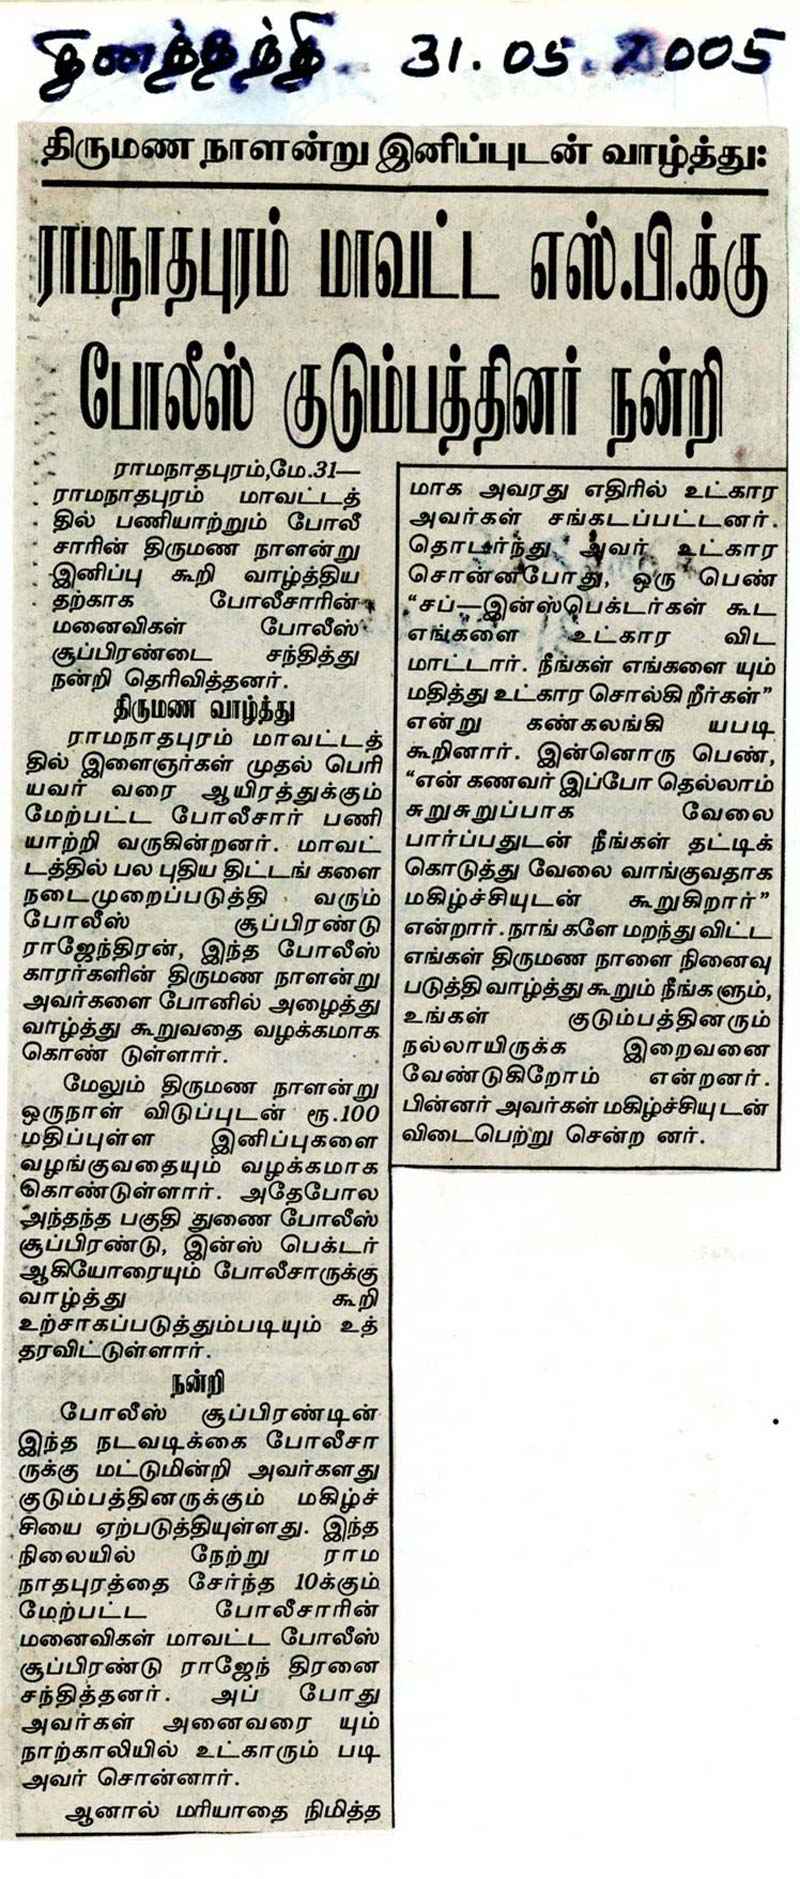 தினத்தந்தி 31.05.2005
திருமண நாளன்று இனிப்புடன் வாழ்த்து:
ராமநாதபுரம் மாவட்ட எஸ்.பி.க்கு
போலீஸ் குடும்பத்தினர் நன்றி
ராமநாதபுரம்,மே.31—
ராமநாதபுரம் மாவட்டத்
தில் பணியாற்றும் போலீ
சாரின் திருமண நாளன்று
இனிப்பு கூறி வாழ்த்திய
தற்காக போலீசாரின்
மனைவிகள் போலீஸ்
சூப்பிரண்டை சந்தித்து
நன்றி தெரிவித்தனர்.
திருமண வாழ்த்து
ராமநாதபுரம் மாவட்டத்
தில் இளைஞர்கள் முதல் பெரி
யவர் வரை ஆயிரத்துக்கும்
மேற்பட்ட போலீசார் பணி
யாற்றி வருகின்றனர். மாவட்
டத்தில் பல புதிய திட்டங் களை
நடைமுறைப்படுத்தி வரும்
போலீஸ் சூப்பிரண்டு
ராஜேந்திரன், இந்த போலீஸ்
காரர்களின் திருமண நாளன்று
அவர்களை போனில் அழைத்து
வாழ்த்து கூறுவதை வழக்கமாக
கொண் டுள்ளார்.
மேலும் திருமண நாளன்று
ஒருநாள் விடுப்புடன் ரூ.100
மதிப்புள்ள இனிப்புகளை
வழங்குவதையும் வழக்கமாக
கொண்டுள்ளார். அதேபோல
அந்தந்த பகுதி துணை போலீஸ்
சூப்பிரண்டு, இன்ஸ் பெக்டர்
ஆகியோரையும் போலீசாருக்கு
வாழ்த்து கூறி
உற்சாகப்படுத்தும்படியும் உத்
தரவிட்டுள்ளார்.
நன்றி
போலீஸ் சூப்பிரண்டின்
இந்த நடவடிக்கை போலீசா
ருக்கு மட்டுமின்றி அவர்களது
குடும்பத்தினருக்கும் மகிழ்ச்
சியை ஏற்படுத்தியுள்ளது. இந்த
நிலையில் நேற்று ராம
நாதபுரத்தை சேர்ந்த 10க்கும்
மேற்பட்ட போலீசாரின்
மனைவிகள் மாவட்ட போலீஸ்
சூப்பிரண்டு ராஜேந் திரனை
சந்தித்தனர். அப் போது
அவர்கள் அனைவரை யும்
நாற்காலியில் உட்காரும் படி
அவர் சொன்னார்.
ஆனால் மரியாதை நிமித்த
மாக அவரது எதிரில் உட்கார
அவர்கள் சங்கடப்பட்டனர்.
தொடர்ந்து அவர் உட்கார
சொன்னபோது, ஒரு பெண்
“சப்—இன்ஸ்பெக்டர்கள் கூட
எங்களை உட்கார விட
மாட்டார். நீங்கள் எங்களை யும்
மதித்து உட்கார சொல்கி றீர்கள்”
என்று கண்கலங்கி யபடி
கூறினார். இன்னொரு பெண்,
“என் கணவர் இப்போ தெல்லாம்
சுறுசுறுப்பாக வேலை
பார்ப்பதுடன் நீங்கள் தட்டிக்
கொடுத்து வேலை வாங்குவதாக
மகிழ்ச்சியுடன் கூறுகிறார்”
என்றார். நாங் களே மறந்து விட்ட
எங்கள் திருமண நாளை நினைவு
படுத்தி வாழ்த்து கூறும் நீங்களும்,
உங்கள் குடும்பத்தினரும்
நல்லாயிருக்க இறைவனை
வேண்டுகிறோம் என்றனர்.
பின்னர் அவர்கள் மகிழ்ச்சியு டன்
விடைபெற்று சென்ற னர்.